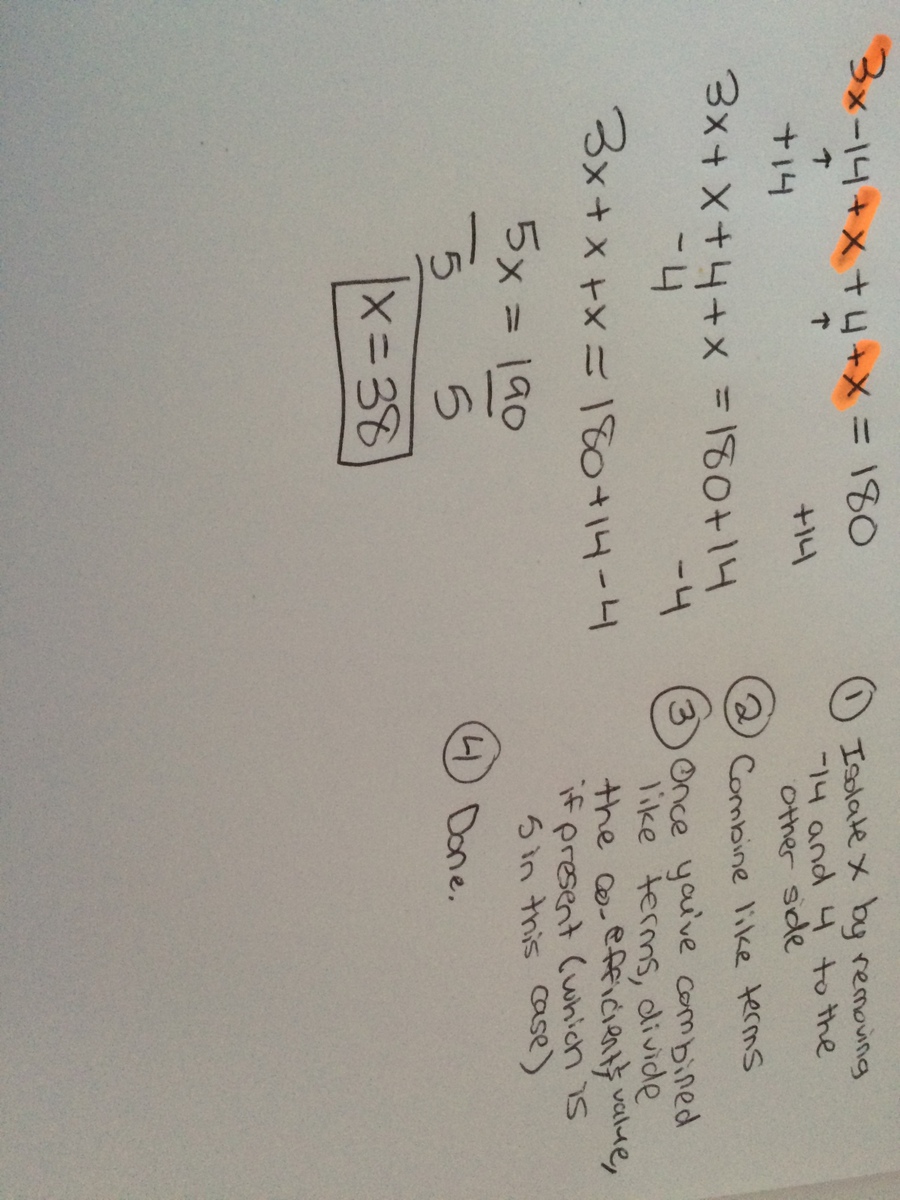 3x-14+x+4+x = 180
+14 +14
3x+x+4+x = 180+14
-4 -4
3x+x+x = 180+14-4
5x = 190
5 5
x = 38
① Isolate x by removing
-14 and 4 to the
other side
② Combine like terms
③ Once you've combined
like terms, divide
the co-efficient's value,
if present (which is
5 in this case)
④ Done.